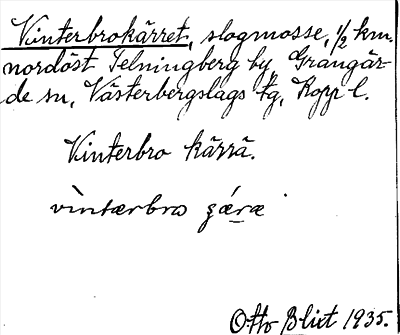 Vinterbrokärret, slogmosse, 1/2 km.
nordöst Telningberg by, Grangär-
de sn, Västerbergslags tg, Kopp l.
Vinterbro kärrä.
vìntærbro
Otto Blixt 1935.